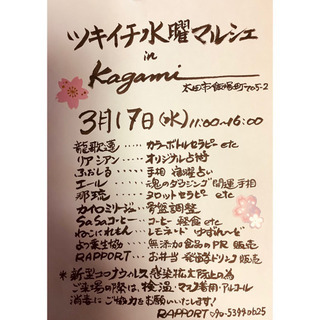 ツキイチ水曜マルシェ
in
Kagami
太田市飯塚町705-2
3月17日(水)11:00~16:00
龍歌道…カラーボトルセラピー etc
リアシアン…オリジナル占術
ふぉしる…手相 宿曜占い
エール…魂のダウジング 開運手相
那琉…タロットセラピー etc
カイロミラージュ…骨盤調整
SaSaコーヒー…コーヒー 軽食 etc
ねこにれもん…レモネード ゆずれーど
よつ葉生協…無添加食品のPR 販売
RAPPORT…お弁当 発酵ドリンク 販売
*新型コロナウルス感染拡大防止の為
ご来場の際は、検温・マスク着用・アルコール
消毒にご協力をお願いいたします!
RAPPORT 90-5344-0625